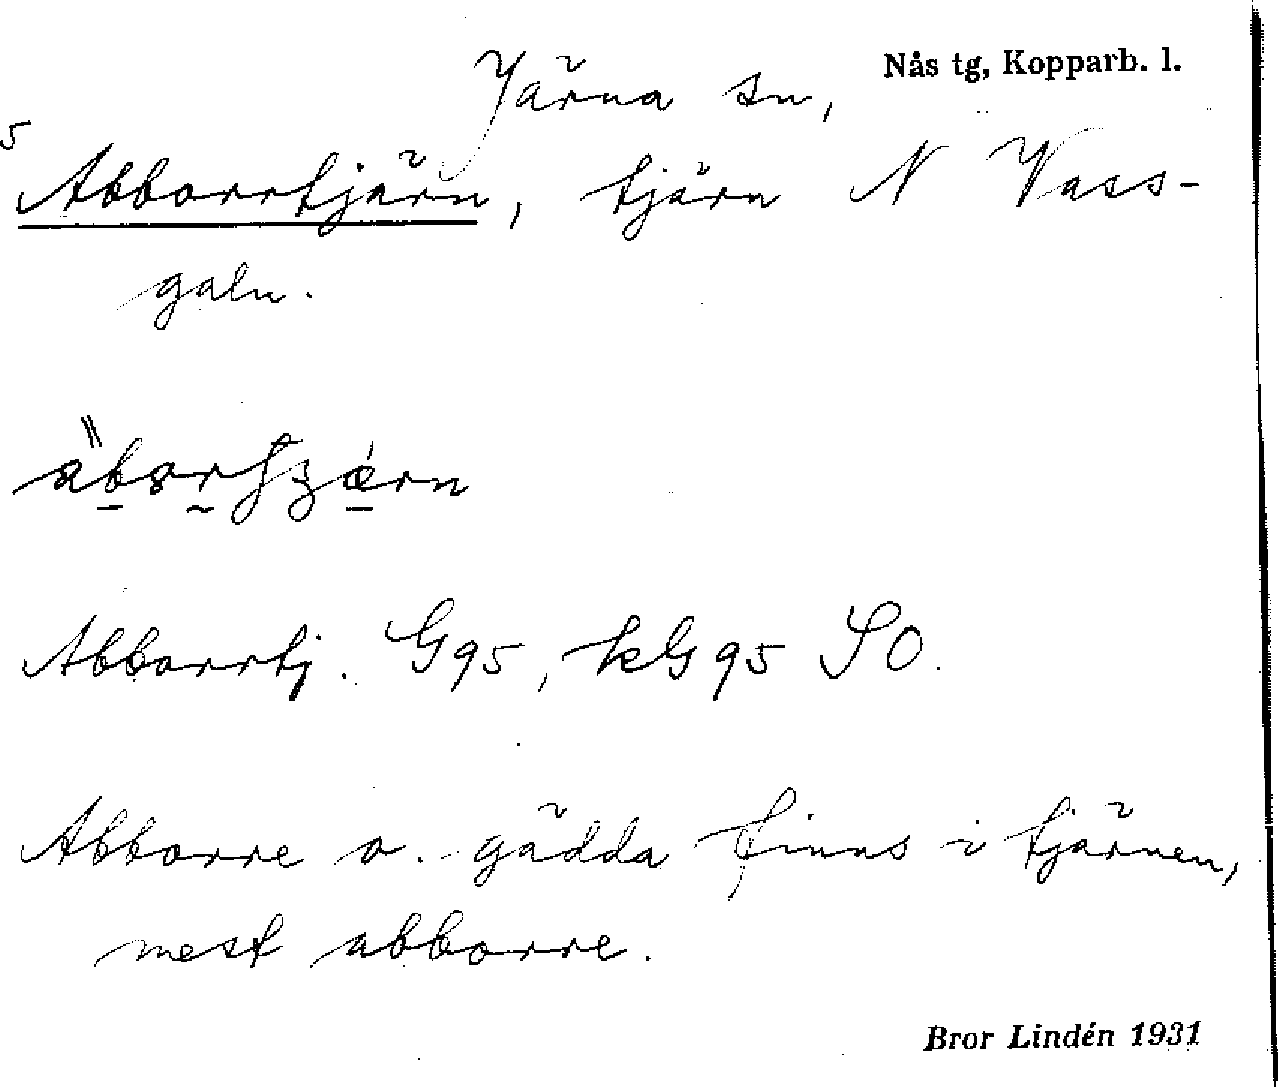 Nås tg, Kopparb. l.
Järna sn,
5
Abborrtjärn, tjärn N Vass-
galn.
Abborrtj. G95, kG95 SO.
Abborre o. gädda finns i tjärnen,
mest abborre.
Bror Lindén 1931